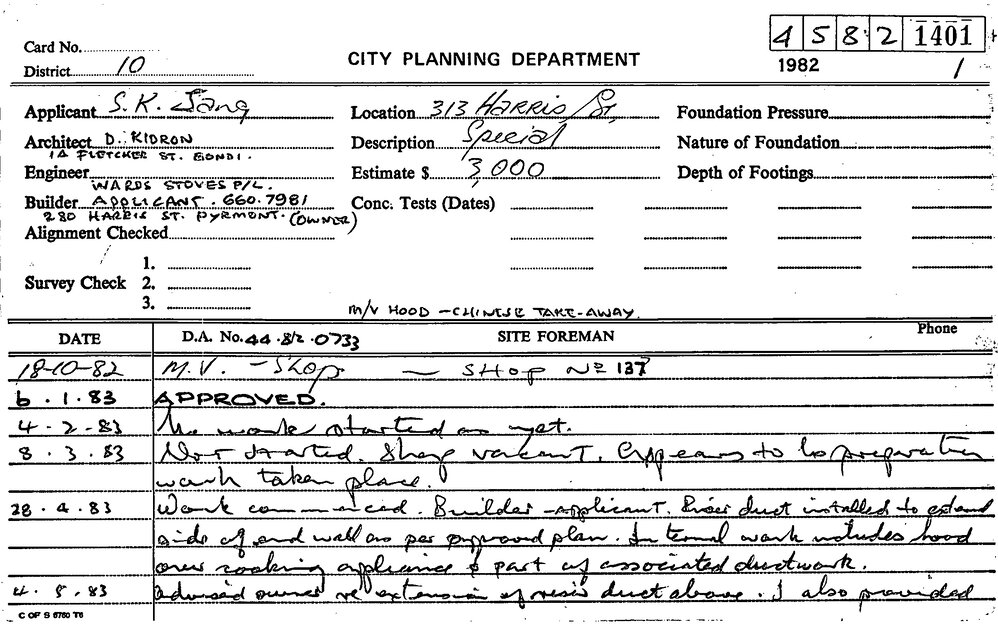 4 5 8 2 1401
Card No.
District 10
CITY PLANNING DEPARTMENT
1982 1
Applicant S. K. Jang
Location 313 HARRIS St,
Foundation Pressure
Architect D. KIDRON
Description Special
Nature of Foundation
1A FLETCHER ST. BONDI.
Engineer
Estimate $ 3,000
Depth of Footings
WARDS STOVES P/L.
Builder APPLICANT. 660.7981
Conc. Tests (Dates)
280 HARRIS ST. PYRMONT. (OWNER)
Alignment Checked
1.
Survey Check 2.
3.
M/V HOOD - CHINESE TAKE-AWAY.
DATE D.A. No. 44.82.0733 SITE FOREMAN Phone
18-10-82 M.V. - Shop — SHOP No 137
6.1.83 APPROVED.
4.2.83 No work started as yet.
8.3.83 Not started. Shop vacant. Appears to be preparation
work taken place.
28.4.83 Work commenced. Builder - applicant. Riser duct installed to extend
side of end wall as per approved plan. Internal work includes hood
over cooking appliance & part of associated ductwork.
4.5.83 Advised owner re extension of riser duct above. I also provided
C OF S 6760 T6